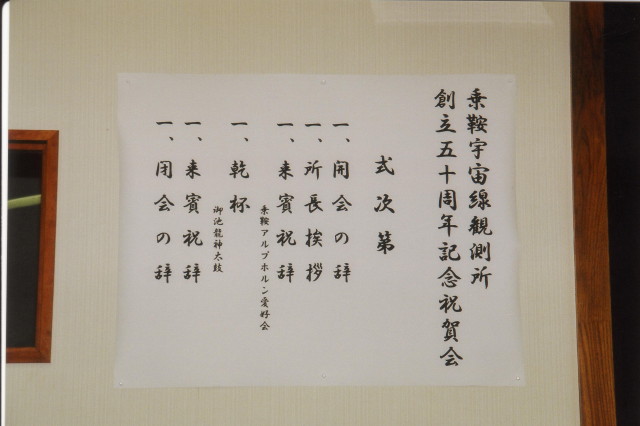 乗鞍宇宙線観測所
創立五十周年記念祝賀会
式次第
一、開会の辞
一、所長挨拶
一、来賓祝辞
乗鞍アルプホルン愛好会
一、乾杯
御池龍神太鼓
一、来賓祝辞
一、閉会の辞